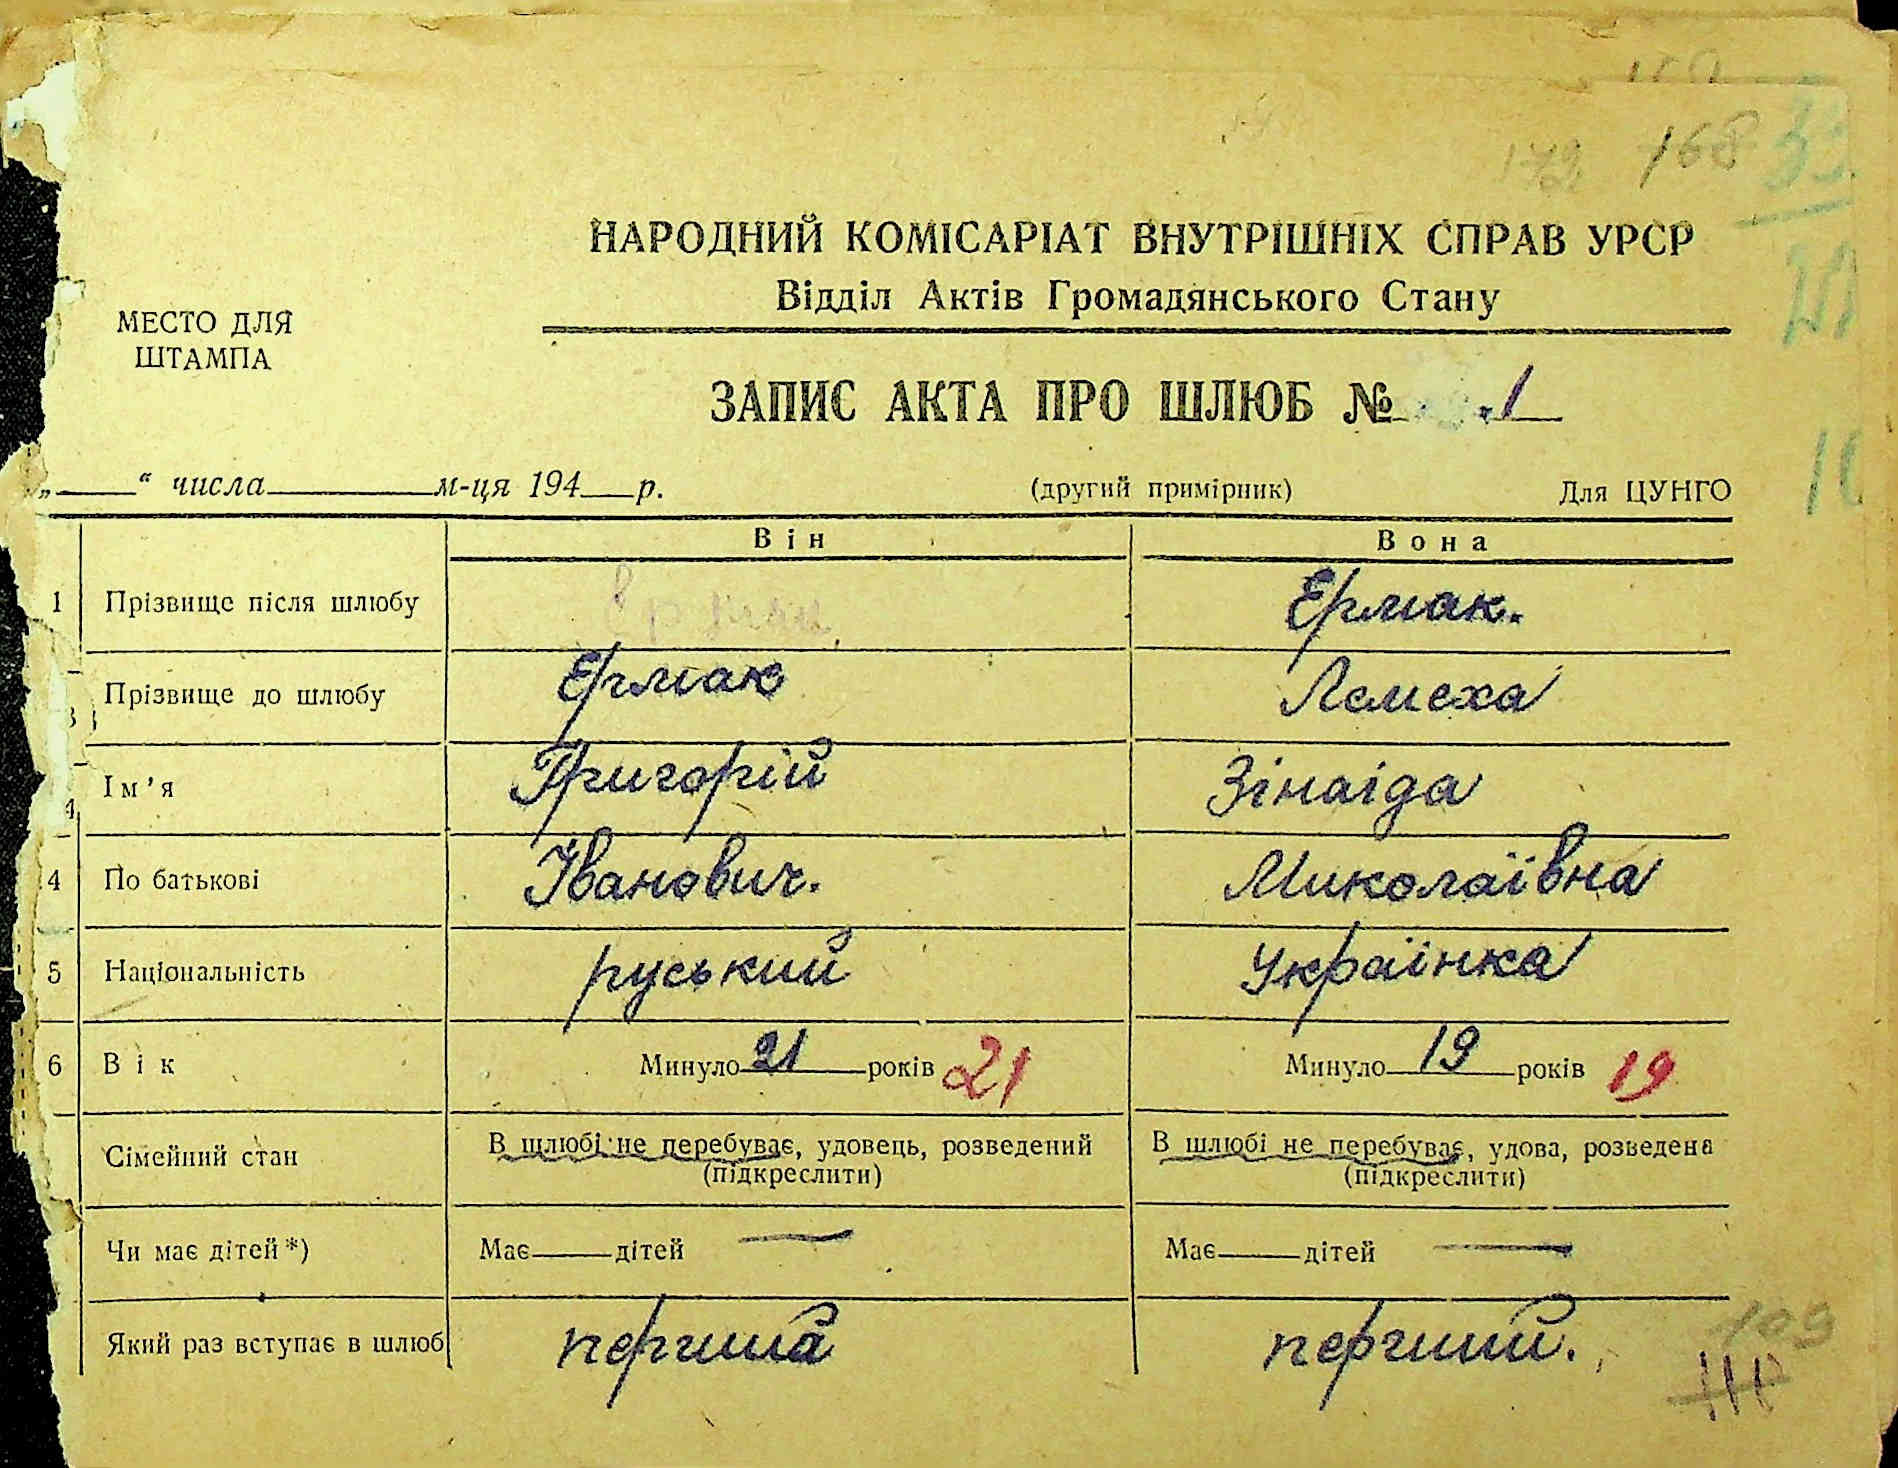 172 168
НАРОДНИЙ КОМІСАРІАТ ВНУТРІШНІХ СПРАВ УРСР
Відділ Актів Громадянського Стану
МЕСТО ДЛЯ
ШТАМПА
ЗАПИС АКТА ПРО ШЛЮБ № 1
„ “ числа м-ця 194 р. (другий примірник) Для ЦУНГО
Він Вона
1 Прізвище після шлюбу Ермак.
Прізвище до шлюбу Ермак Лемеха
Ім'я Григорій Зінаіда
4 По батькові Іванович. Миколаївна
5 Національність руський Українка
6 Вік Минуло 21 років 21 Минуло 19 років 19
Сімейний стан В шлюбі не перебуває, удовець, розведений В шлюбі не перебуває, удова, розведена
(підкреслити) (підкреслити)
Чи має дітей*) Має — дітей — Має — дітей —
109
Який раз вступає в шлюб перший перший.